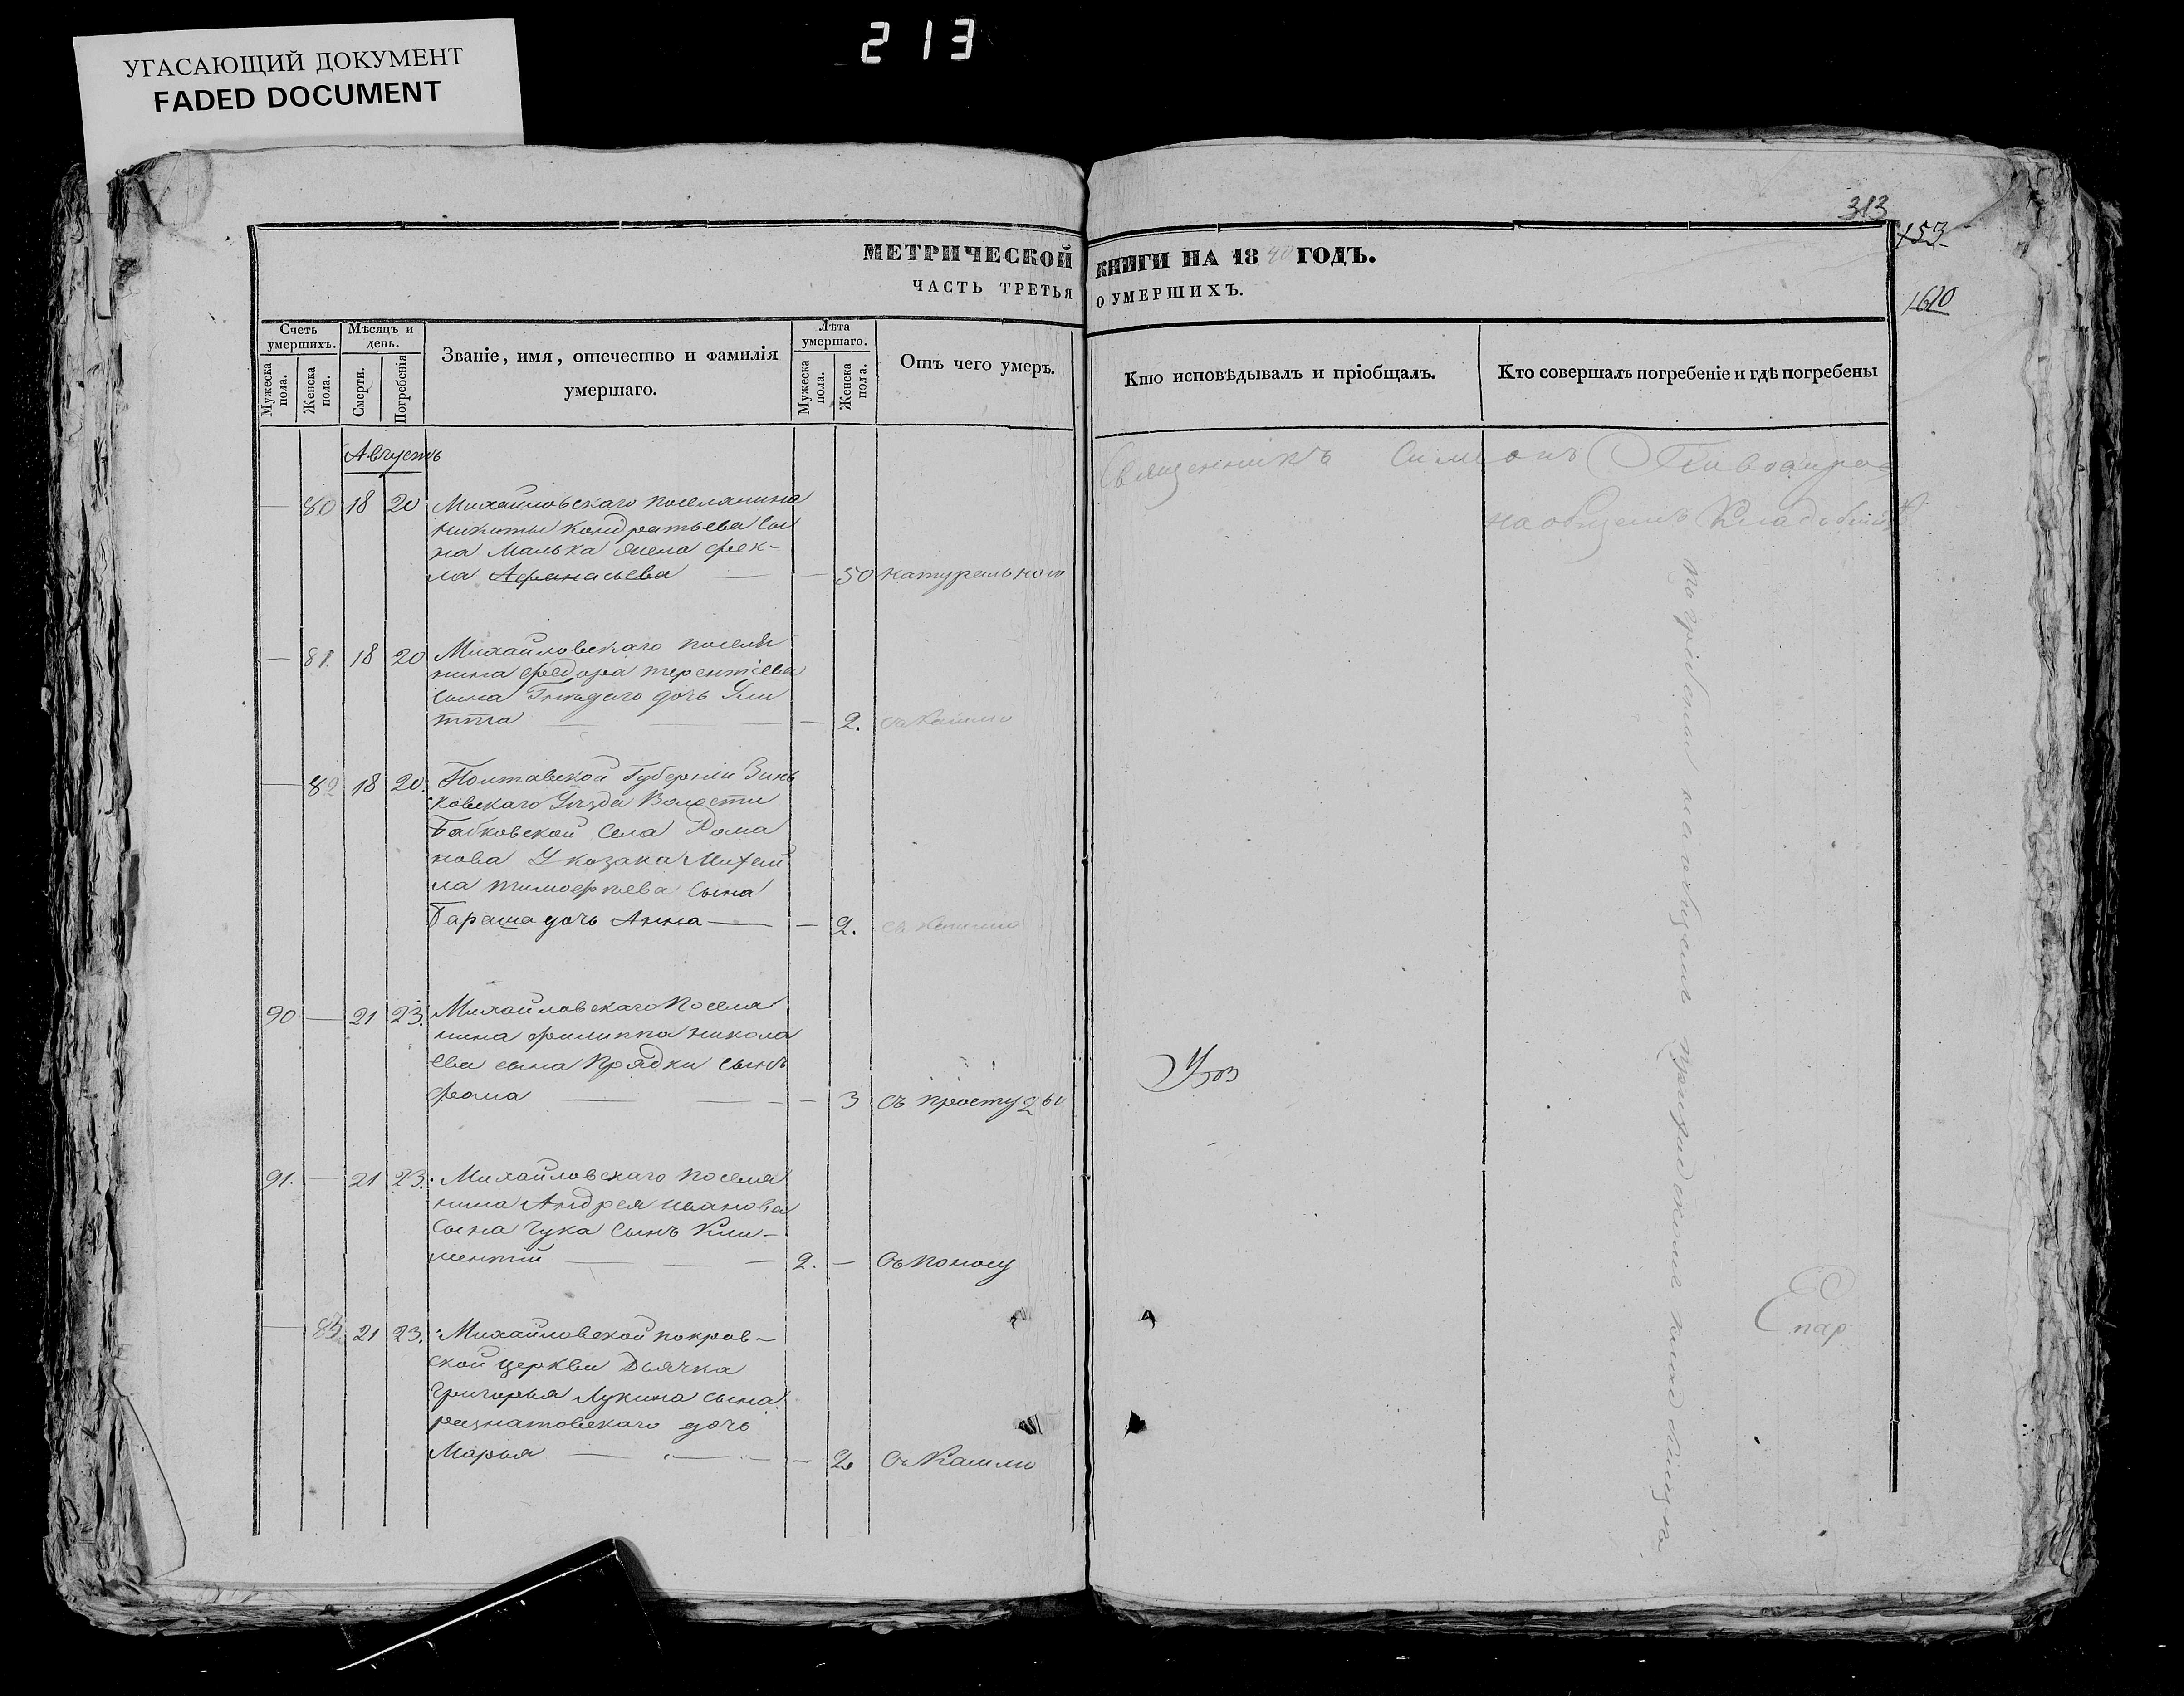 213
УГАСАЮЩИЙ ДОКУМЕНТ
FADED DOCUMENT
313
153
1610
МЕТРИЧЕСКОЙ КНИГИ НА 1840 ГОДЪ.
ЧАСТЬ ТРЕТЬЯ О УМЕРШИХЪ.
Счетъ умершихъ.
Мужеска пола.
Женска пола.
Мѣсяцъ и день.
Смерти.
Погребенія
Званіе, имя, отечество и фамилія умершаго.
Лѣта умершаго.
Мужеска пола.
Женска пола.
Отъ чего умеръ.
Кто исповѣдывалъ и пріобщалъ.
Кто совершалъ погребеніе и гдѣ погребены
Августъ
Священникъ Симеонъ
на общемъ Кладбищѣ
— 80 18 20 Михайловскаго поселянина
Никиты Кондратьева сы
на Малька жена Фек-
ла Афанасьева — — 50 натурально
— 81. 18 20 Михайловскаго поселя
нина Федора Терентіева
сына Гнѣдаго дочь Ули
тта — — 2. съ Кашлю
— 82 18 20. Полтавской Губерніи Зинь
ковскаго Уѣзда Волости
Бабковской Села Рома
нова У козака Михаи
ла Тимофѣева сына
Параша дочь Анна — — 2. съ кашлю
90 — 21 23. Михайловскаго Поселя
нина Филиппа Никола
ева сына Прядки сынъ
Фома — — 3 съ простуды
91. — 21 23. Михайловскаго поселя
нина Андрея Иванова
сына Чука сынъ Кли-
ментій — 2. — съ поносу
— 83 21 23. Михайловской покров-
ской церкви Дьячка
Григорья Лукина сына
разнатовскаго дочь
Марья — — 2. съ Кашлю
Епар